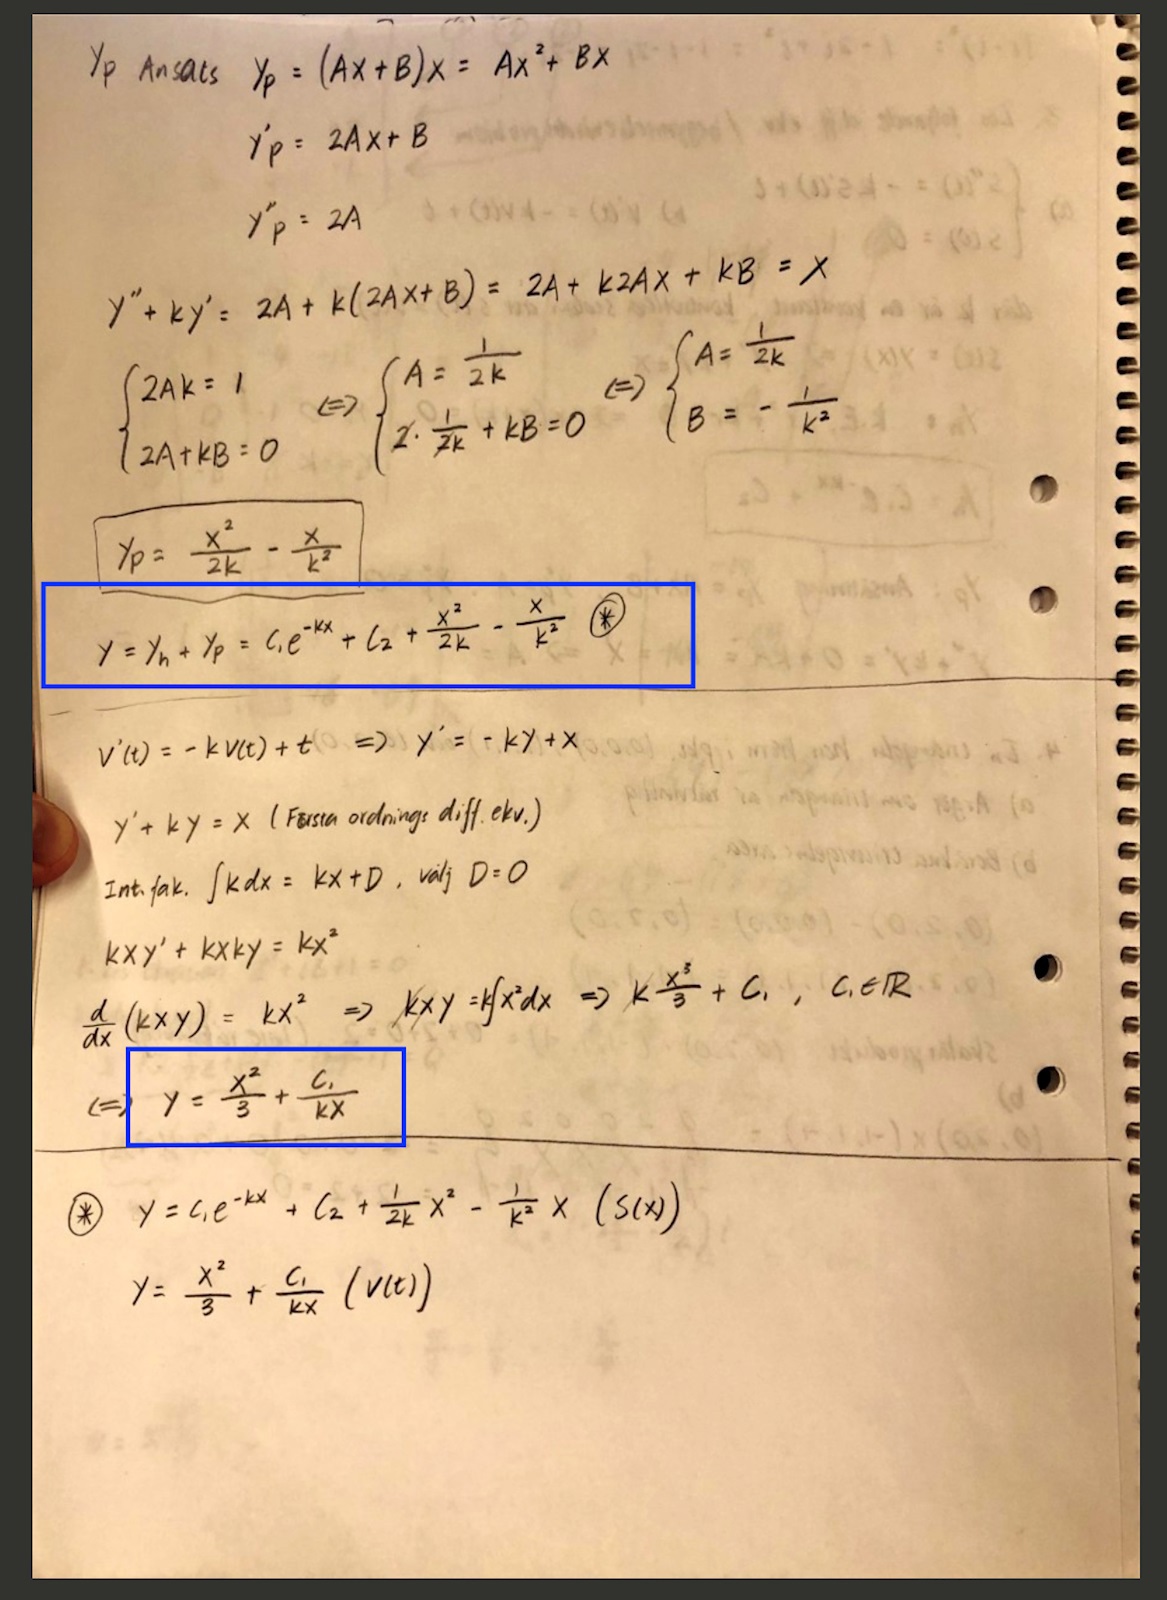 Yp Ansats Yp = (Ax+B)x = Ax² + Bx
y'p = 2Ax + B
y''p = 2A
y'' + ky' = 2A + k(2Ax + B) = 2A + k2Ax + kB = x
{ 2Ak = 1 <=> { A = 1/2k <=> { A = 1/2k
{ 2A + kB = 0 { 2 · 1/2k + kB = 0 { B = - 1/k²
Yp = x²/2k - x/k²
y = yh + yp = C₁e^-kx + C₂ + x²/2k - x/k² (*)
v'(t) = -kv(t) + t => y' = -ky + x
y' + ky = x (Första ordnings diff. ekv.)
Int. fak. ∫kdx = kx + D, välj D = 0
kxy' + kxky = kx²
d/dx (kxy) = kx² => kxy = k∫x²dx => k x³/3 + C₁ , C₁ ∈ ℝ
(=) y = x²/3 + C₁/kx
(*) y = C₁e^-kx + C₂ + 1/2k x² - 1/k² x (S(x))
y = x²/3 + C₁/kx (V(t))